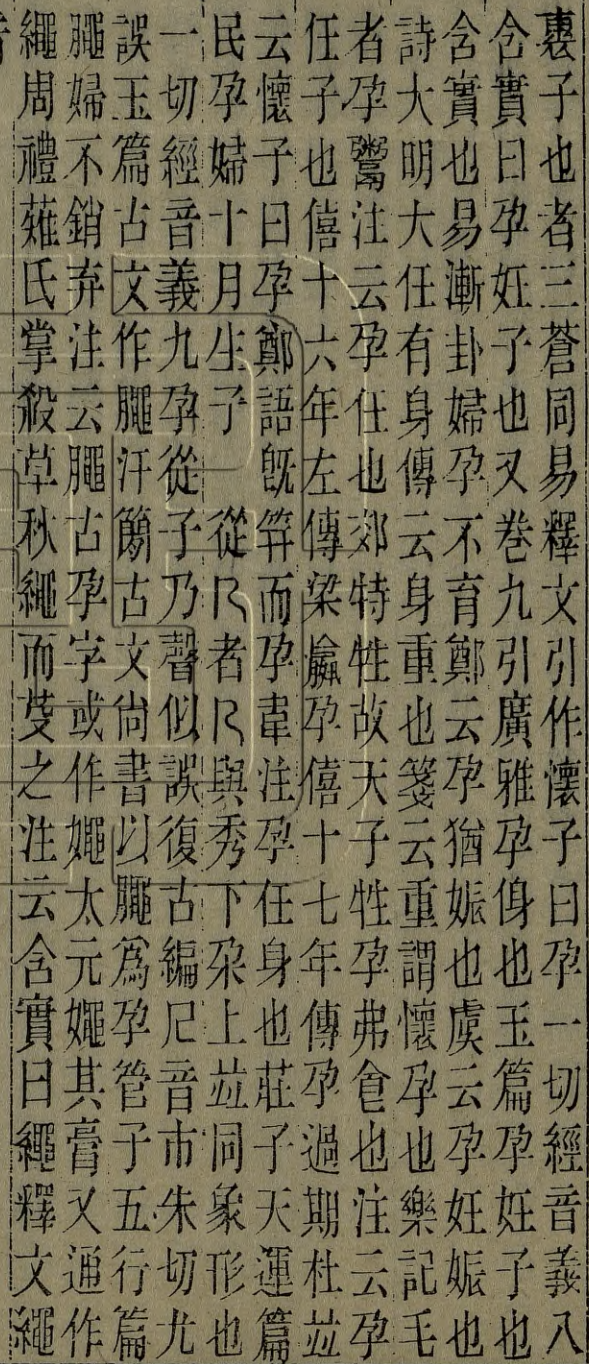 褢子也者三蒼同易釋文引作懷子曰孕一切經音義八
含實曰孕妊子也又卷九引廣雅孕㑗也玉篇孕妊子也
含實也易漸卦婦孕不育鄭云孕猶娠也虞云孕妊娠也
詩大明大任有身傳云身重也箋云重謂懷孕也樂記毛
者孕鬻注云孕任也郊特牲故天子牲孕弗食也注云孕
任子也僖十六年左傳梁嬴孕僖十七年傳孕過期杜竝
云懷子曰孕鄭語旣笄而孕韋注孕任身也莊子天運篇
民孕婦十月生子 從𠃧者𠃧與秀下朶上竝同象形也
一切經音義九孕從子乃聲似誤復古編𠘧音市朱切尢
誤玉篇古文作䐈汗簡古文尙書以䐈爲孕管子五行篇
䐈婦不銷弃注云䐈古孕字或作㜲太元㜲其膏又通作
繩周禮薙氏掌殺草秋繩而芟之注云含實曰繩釋文繩
音